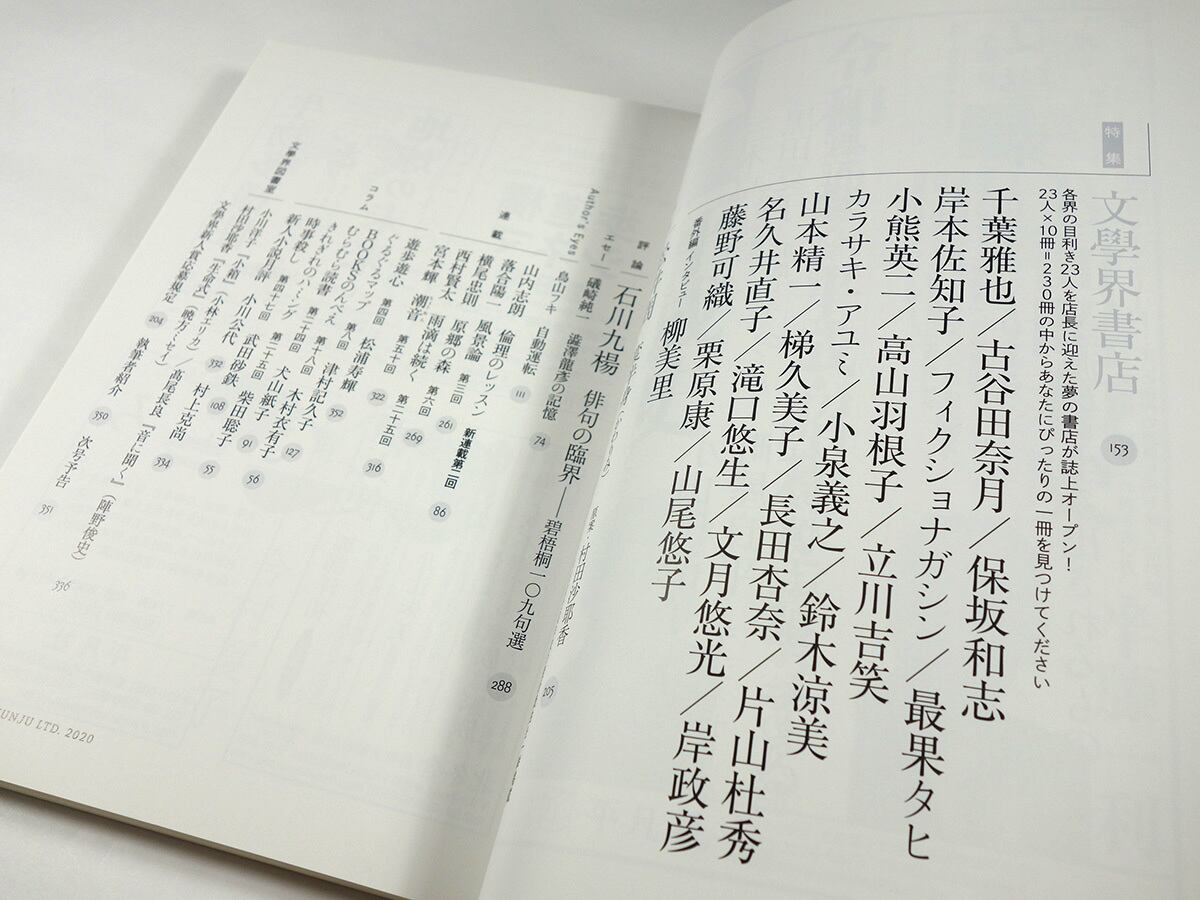 特集
文學界書店 153
各界の目利き23人を店長に迎えた夢の書店が誌上オープン!
23人×10冊=230冊の中からあなたにぴったりの一冊を見つけてください
千葉雅也/古谷田奈月/保坂和志
岸本佐知子/フィクショナガシン/最果タヒ
小熊英二/高山羽根子/立川吉笑
カラサキ・アユミ/小泉義之/鈴木涼美
山本精一/梯久美子/長田杏奈/片山杜秀
名久井直子/滝口悠生/文月悠光/岸政彦
藤野可織/栗原康/山尾悠子
番外編 インタビュー
柳美里
原案・村田沙耶香 205
評論
石川九楊 俳句の臨界――碧梧桐一〇九句選 288
エセー
礒崎純一 澁澤龍彦の記憶 74
Author's Eyes
島山フキ 自動運転 111
連載
山内志朗 倫理のレッスン 新連載第二回 86
落合陽一 風景論 第三回 261
横尾忠則 原郷の森 第六回 269
西村賢太 雨滴は続く
宮本輝 潮音
コラム
遊歩遊心
ぐるぐるマップ 第四回
BOOKSのんべえ 松浦寿輝
むらむら読書 第八回 津村記久子
きれぎれのハミング 第十八回 木村衣有子
時事殺し 第二十四回 犬山紙子
新人小説月評
文學界図書室
小川洋子『小箱』(小林エリカ)
文學界新人賞応募規定 204
執筆者紹介 350
次号予告 351
336
UNJU LTD. 2020